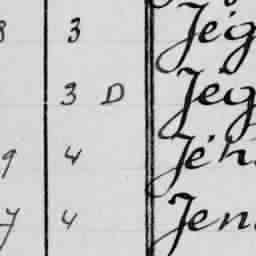 8 3 Jég
3 D Jég
9 4 Jéh
7 4 Jen